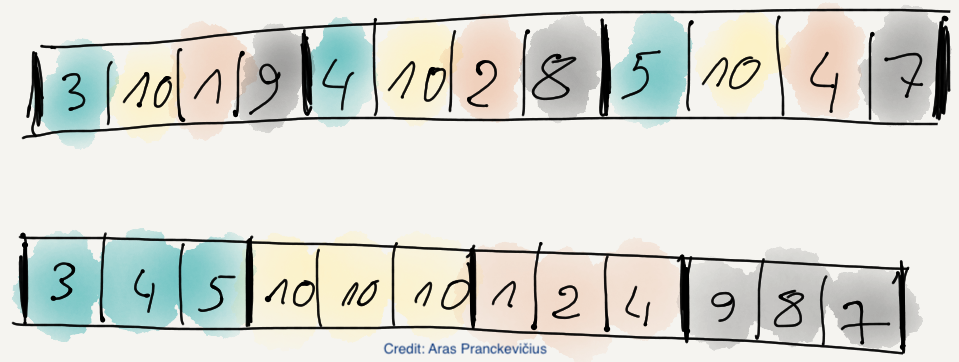 3 10 1 9 4 10 2 8 5 10 4 7
3 4 5 10 10 10 1 2 4 9 8 7
Credit: Aras Pranckevičius